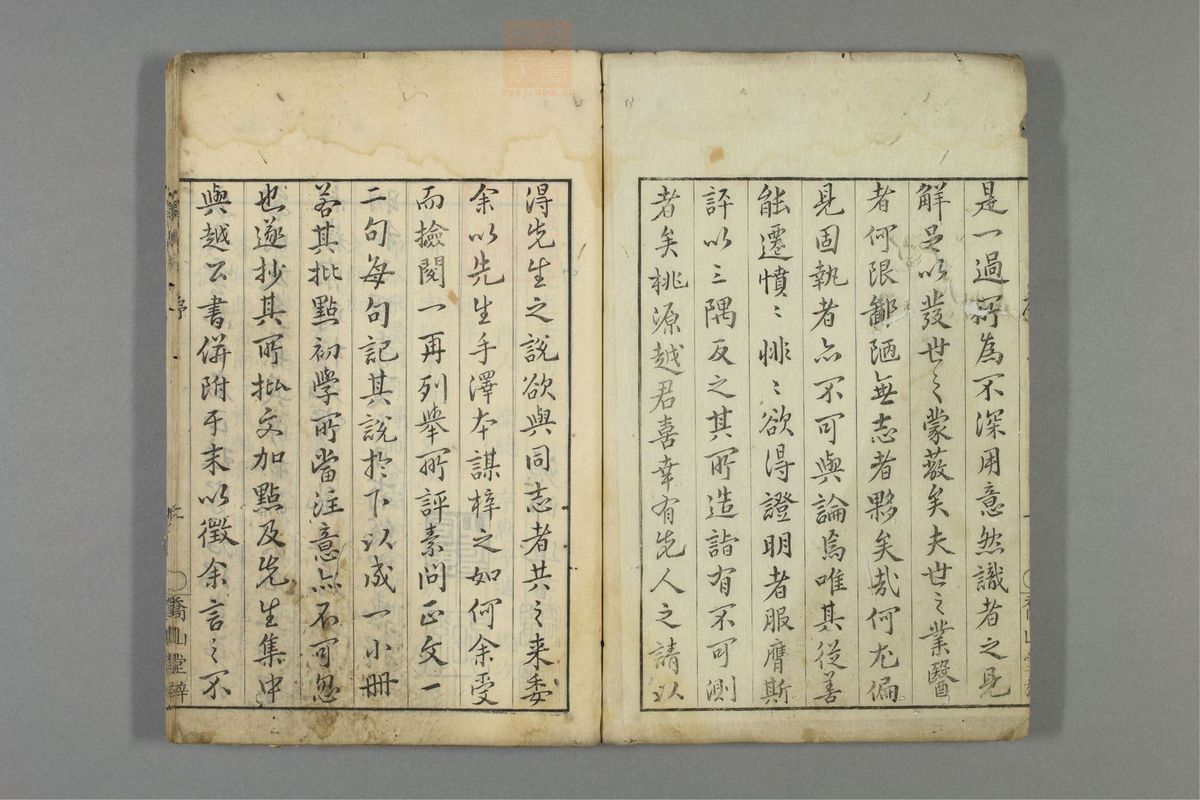 是一過所為不深用意然識者之見
解足以發世之蒙蔽矣夫世之業醫
者何限鄙陋無志者夥矣哉何尤偏
見固執者亦不可與論焉唯其從善
能遷憤〻悱〻欲得證明者服膺斯
評以三隅反之其所造詣有不可測
者矣桃源越君喜幸有先人之請以
得先生之說欲與同志者共之来委
余以先生手澤本謀梓之如何余受
而撿閱一再列舉所評素問正文一
二句每句記其說於下以成一小冊
若其批點初學所當注意亦不可忽
也遂抄其所批文加點及先生集中
與越公書併附于末以徵余言之不
序
喬山堂梓
zysj.com.cn